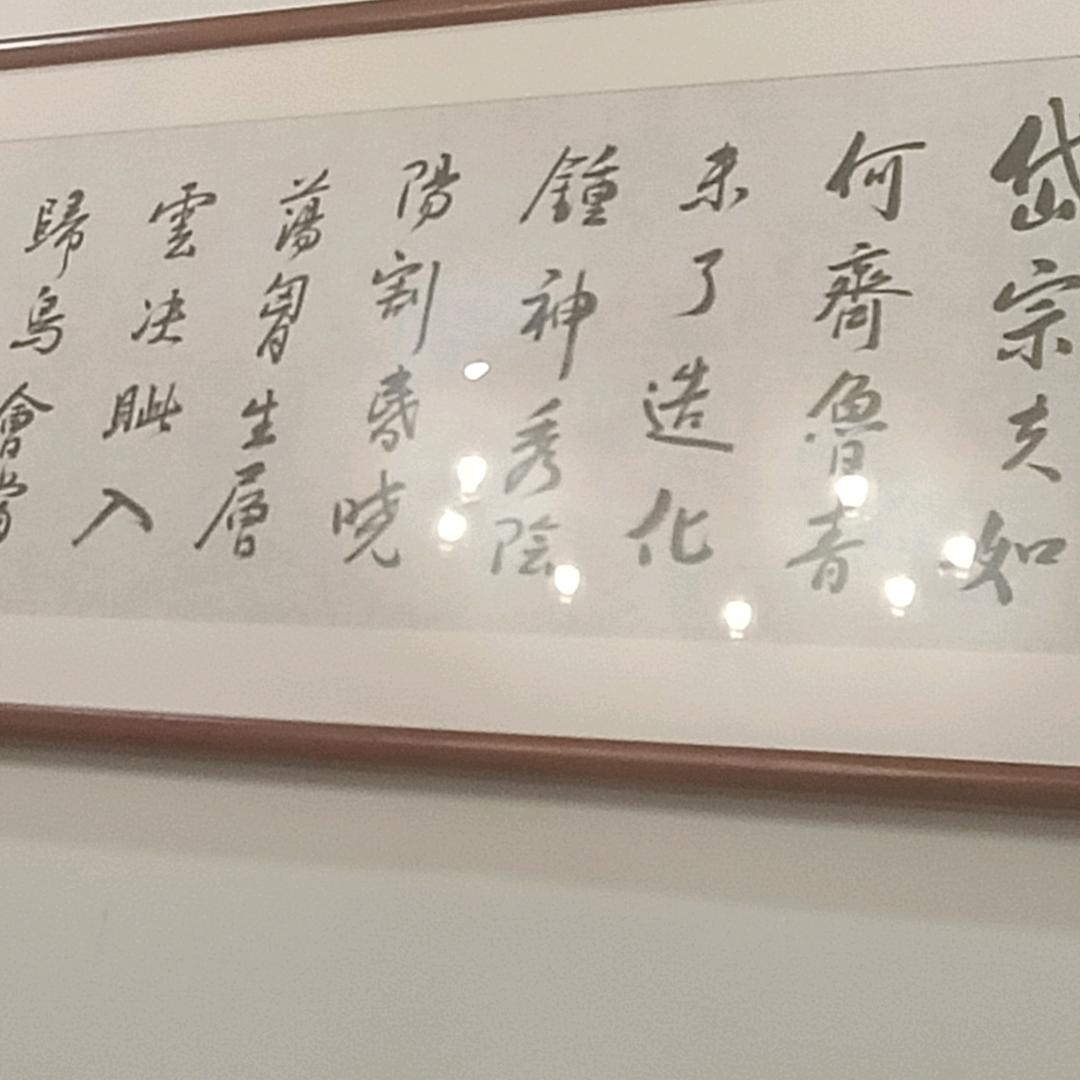 岱宗夫如
何齊魯青
未了造化
鍾神秀陰
陽割昬曉
蕩胷生層
雲决眦入
歸鳥會當